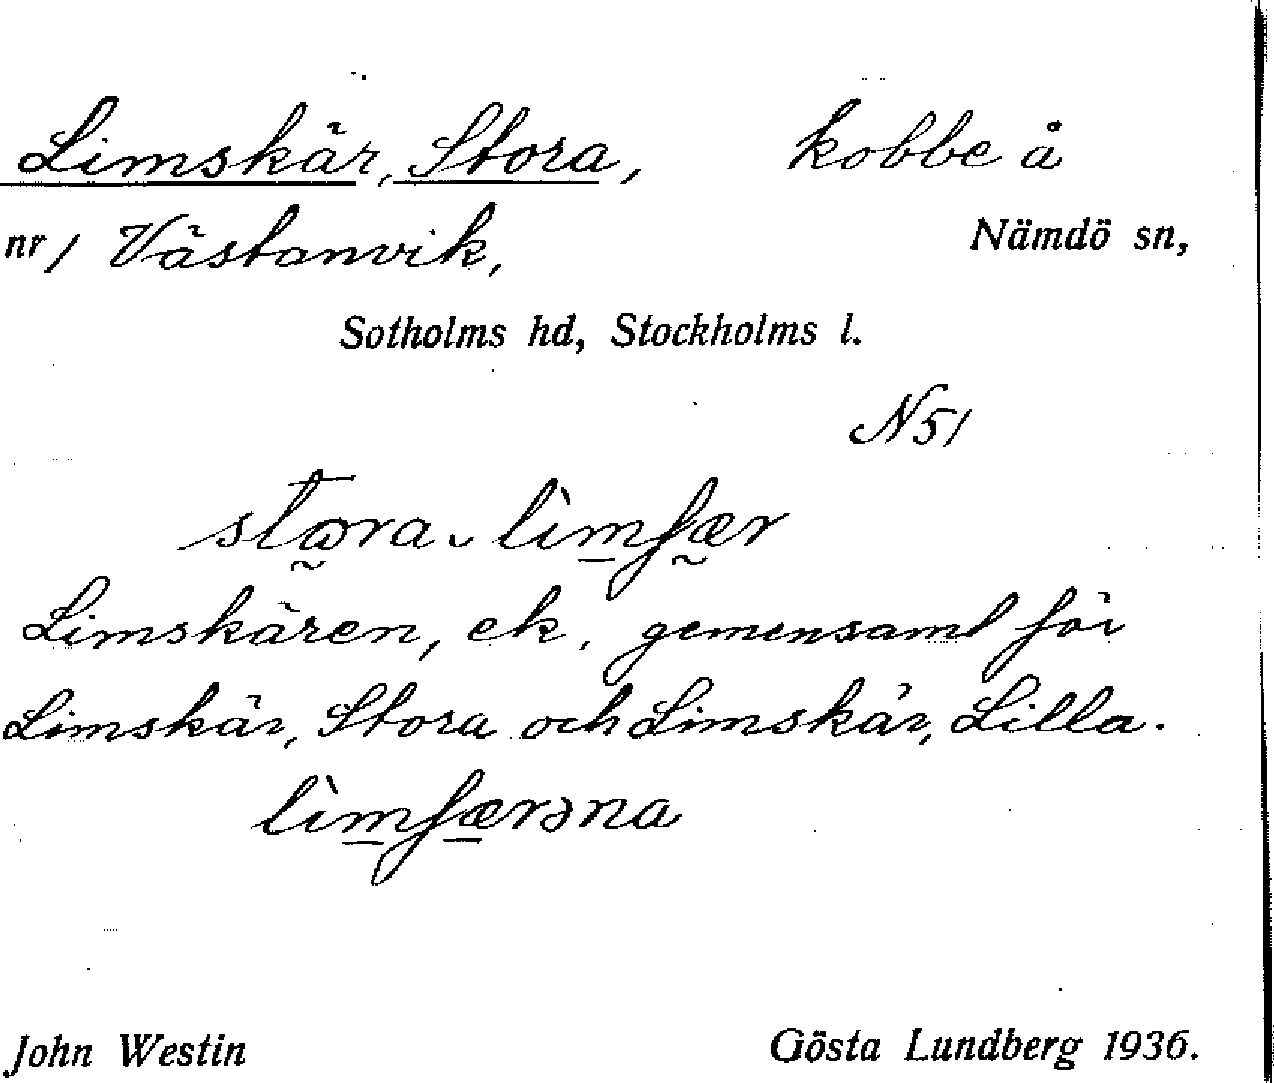 Limskär, Stora, kobbe å
nr 1 Västanvik, Nämdö sn,
Sotholms hd, Stockholms l.
N51
stωra lìmʃær
Limskären, ek. gemensamt för
Limskär, Stora och Limskär, Lilla.
lìmʃærəna
John Westin Gösta Lundberg 1936.